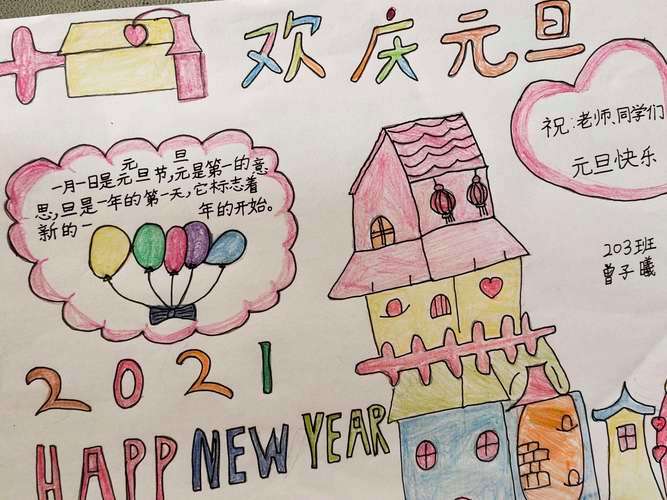 欢庆元旦
祝:老师、同学们
元旦快乐
元 旦
一月一日是元旦节,元是第一的意
思,旦是一年的第一天,它标志着
新的一 年的开始。
203班
曾子曦
2021
HAPP NEW YEAR